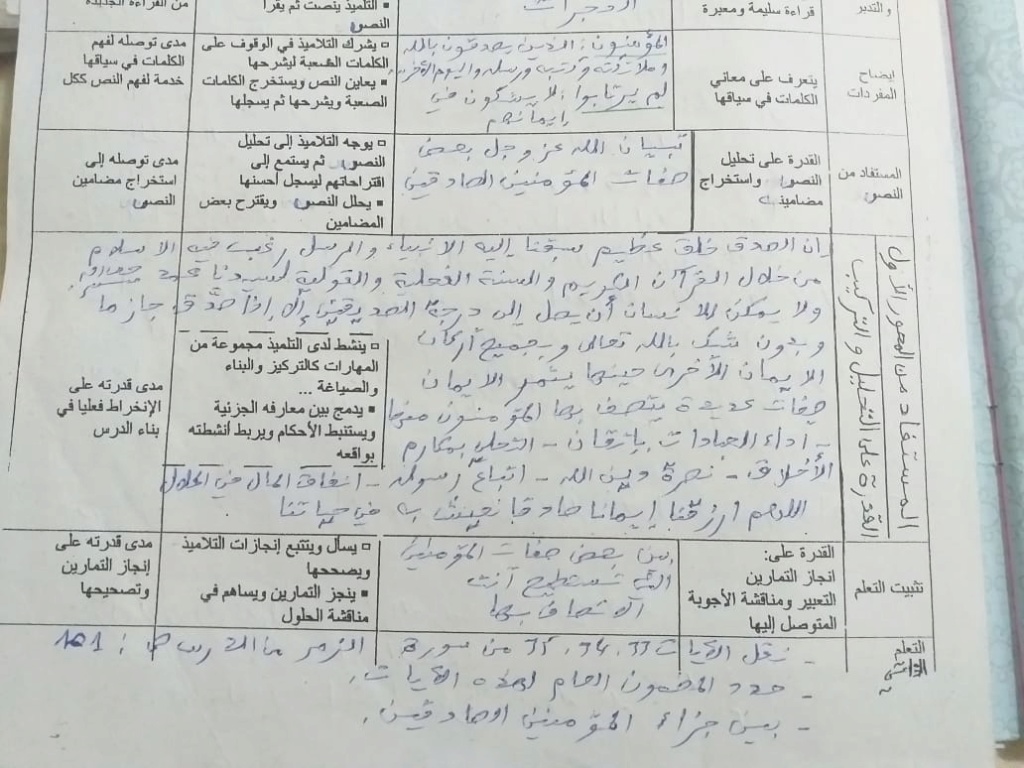 والتدبر
قراءة سليمة ومعبرة
الحجرات
▪ التلميذ ينصت ثم يقرأ
النص
من القراءة الجيدة
إيضاح
المفردات
يتعرف على معاني
الكلمات في سياقها
المؤمنون: الذين يصدقون بالله
وملائكته وكتبه ورسله واليوم الآخر
لم يرتابوا: لا يشكون في
إيمانهم
□ يشرك التلاميذ في الوقوف على
الكلمات الصعبة ليشرحها
▪ يعاين النص ويستخرج الكلمات
الصعبة ويشرحها ثم يسجلها
مدى توصله لفهم
الكلمات في سياقها
خدمة لفهم النص ككل
المستفاد من
النص
القدرة على تحليل
النص واستخراج
مضامينه
تبيان الله عز وجل بعض
صفات المؤمنين الصادقين
□ يوجه التلاميذ إلى تحليل
النص ثم يستمع إلى
اقتراحاتهم ليسجل أحسنها
▪ يحلل النص ويقترح بعض
المضامين
مدى توصله إلى
استخراج مضامين
النص
المستفاد من المحور الأول
القدرة على التحليل والتركيب
إن الصدق خلق عظيم سبقنا إليه الأنبياء والرسل رغب فيه الإسلام
من خلال القرآن الكريم والسنة الفعلية والقولية لسيدنا محمد
ولا يمكن للإنسان أن يصل إلى درجة الصديقين إلا إذا صدق جازما
وبدون شك بالله تعالى وبجميع أركان
الايمان الأخرى حينها يثمر الايمان
صفات عديدة يتصف بها المؤمنون منها
- اداء العبادات بإتقان - التحلي بمكارم
الأخلاق - نصرة دين الله - اتباع رسوله - انفاق المال في الحلال
اللهم ارزقنا إيمانا صادقا نعيش به في حياتنا
□ ينشط لدى التلميذ مجموعة من
المهارات كالتركيز والبناء
والصياغة ...
▪ يدمج بين معارفه الجزئية
ويستنبط الأحكام ويربط أنشطته
بواقعه
مدى قدرته على
الإنخراط فعليا في
بناء الدرس
تثبيت التعلم
القدرة على:
انجاز التمارين
التعبير ومناقشة الأجوبة
المتوصل إليها
بين بعض صفات المؤمنين
التي تستطيع أنت
الاتصاف بها
□ يسأل ويتتبع إنجازات التلاميذ
ويصححها
▪ ينجز التمارين ويساهم في
مناقشة الحلول
مدى قدرته على
إنجاز التمارين
وتصحيحها
التعلم
- نقل الآيات 33، 34، 35 من سورة الزمر
- حدد المضمون العام لهذه الآيات.
- بين جزاء المؤمنين الصادقين.